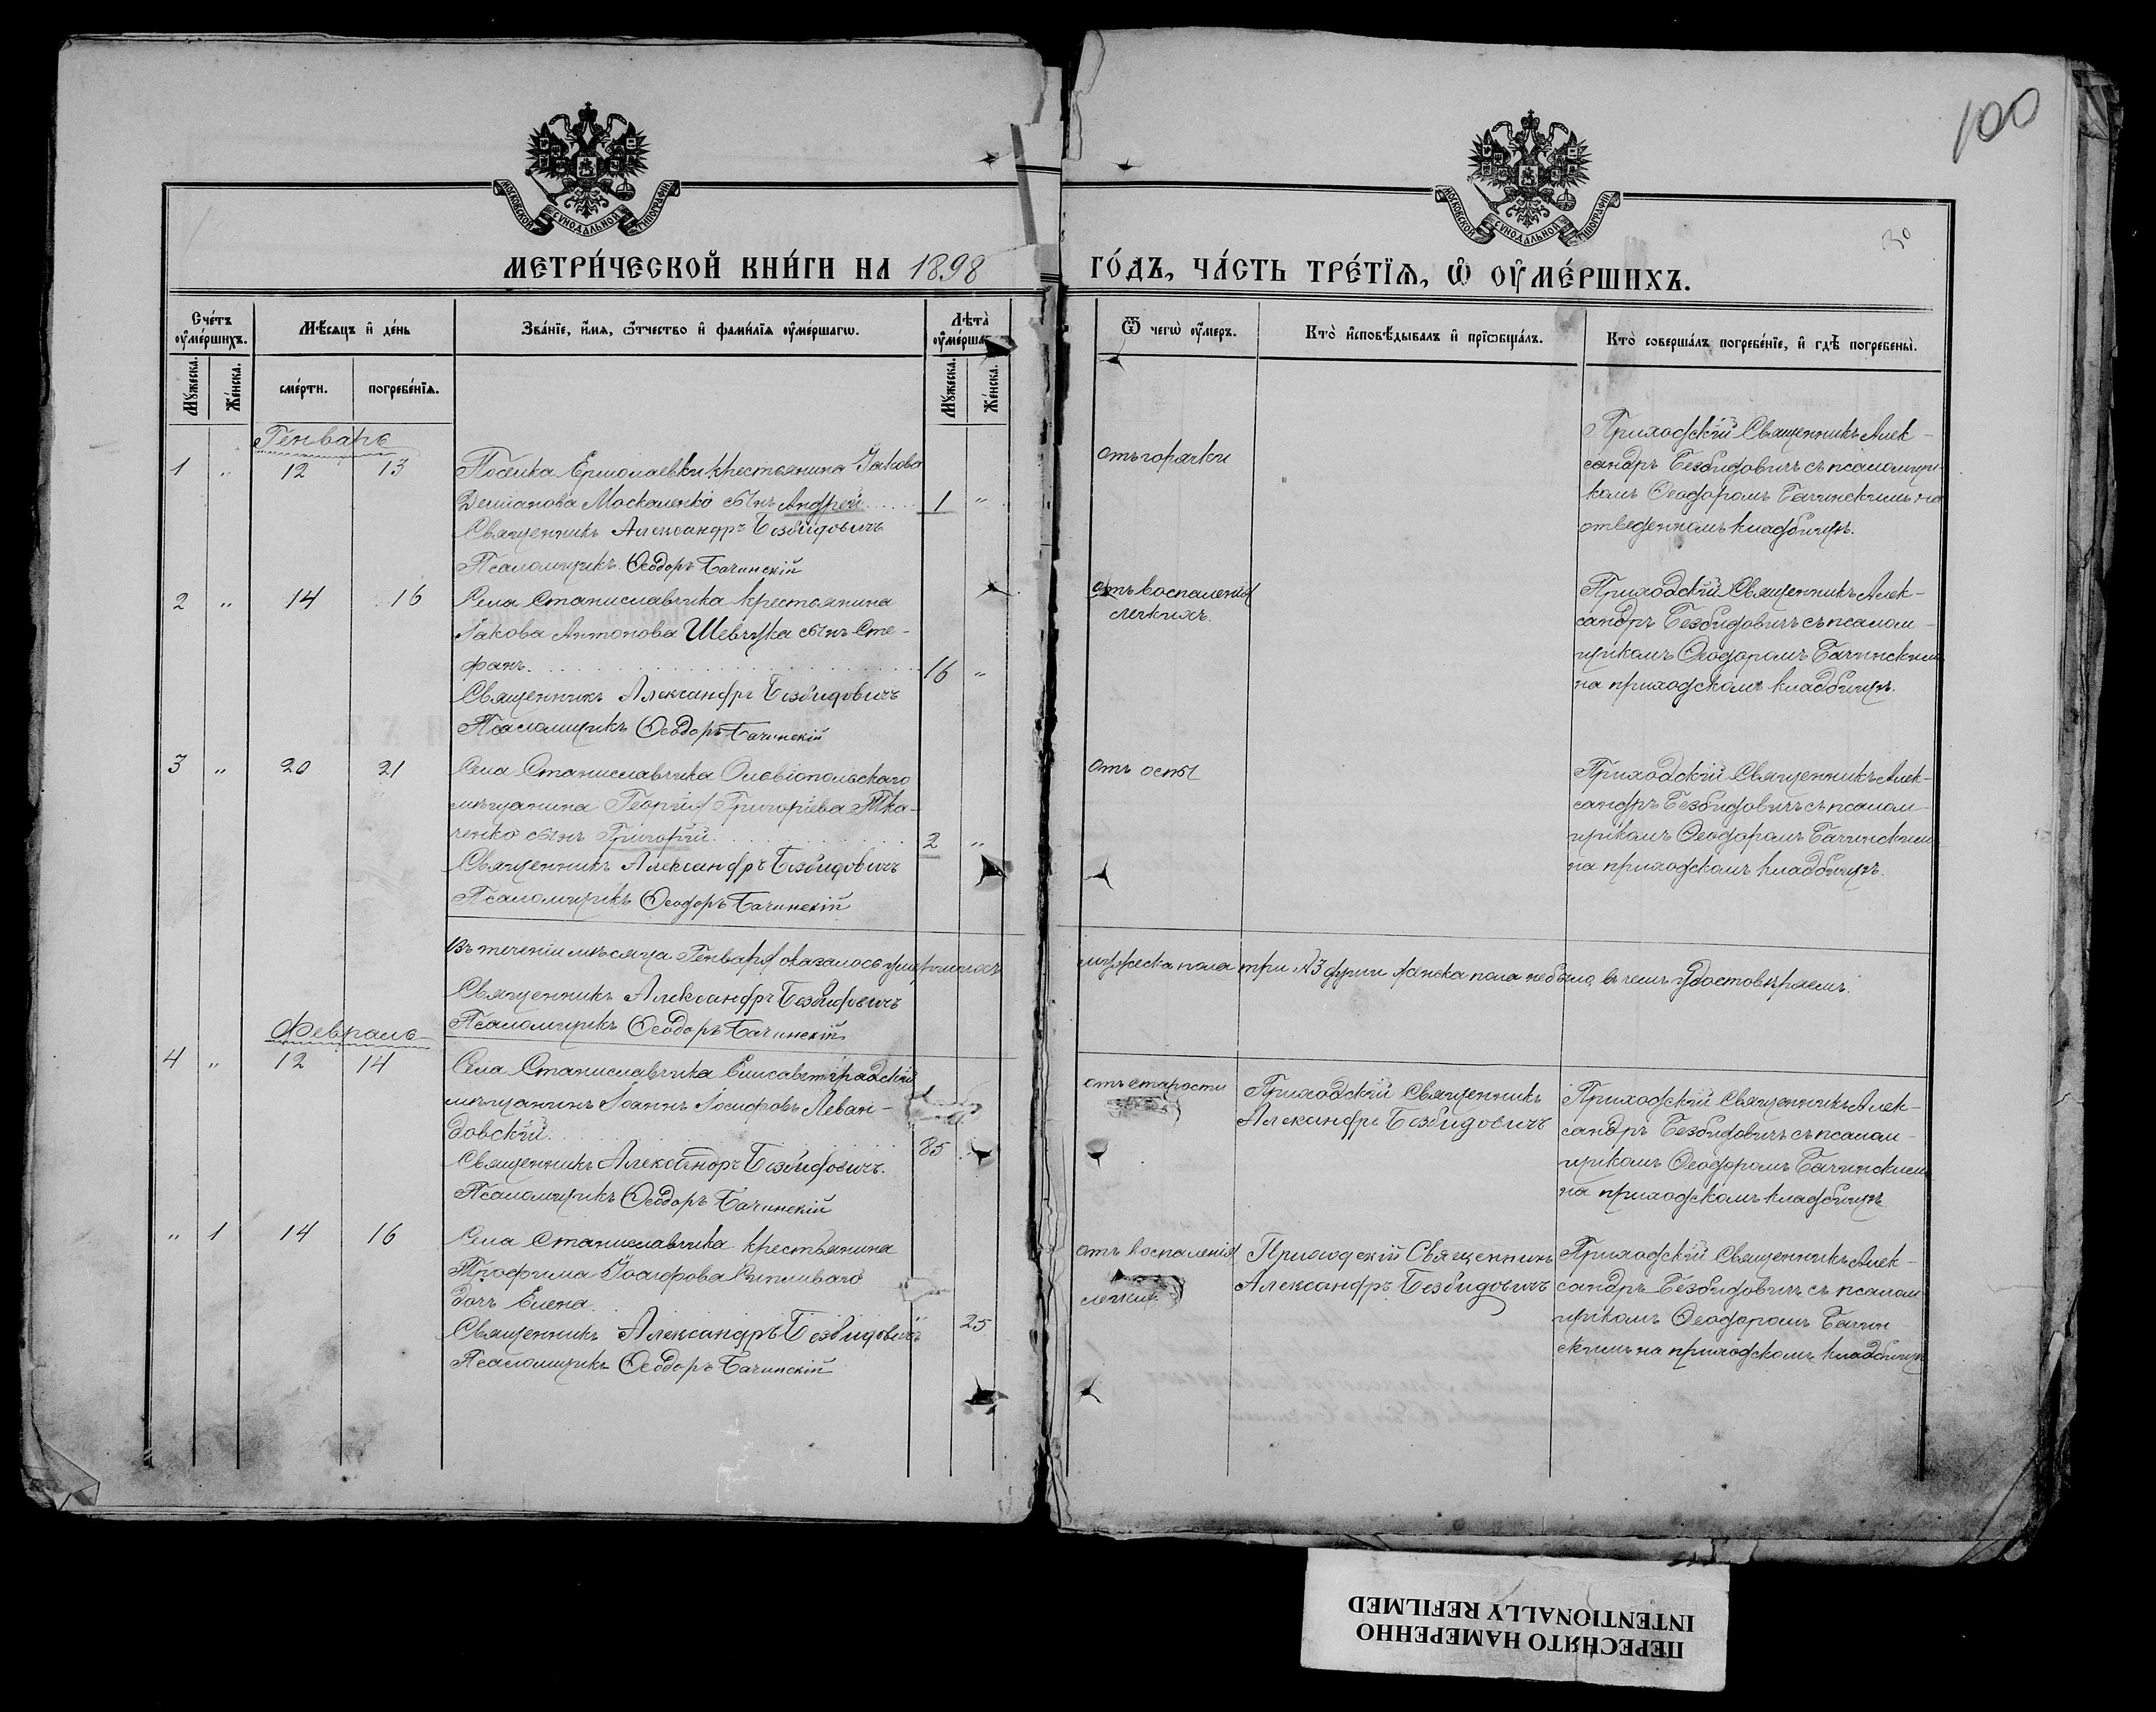 100
30
МОСКОВСКОЙ СУНОДАЛЬНОЙ ТИПОГРАФІИ
МОСКОВСКОЙ СУНОДАЛЬНОЙ ТИПОГРАФІИ
МЕТРИ́ЧЕСКОЙ КНИ́ГИ НА 1898 ГО́ДЪ, ЧА́СТЬ ТРЕ́ТІѦ, Ѽ ОУ҆МЕ́РШИХЪ.
Сче́тъ оу҆ме́ршихъ.
Мꙋ́жеска.
Же́нска.
Мѣ́сѧцъ и҆ де́нь
сме́рти.
погребе́нїѧ.
Зва́нїе, и҆́мѧ, ѻ҆́тчество и҆ фами́лїѧ оу҆ме́ршагѡ.
Лѣ̀та̀ оу҆ме́рша
Мꙋ́жеска.
Же́нска.
Ѿ чегѡ̀ оу҆́меръ.
Кто̀ и҆сповѣ́дывалъ и҆ прїѡбща́лъ.
Кто̀ соверша́лъ погребе́нїе, и҆ гдѣ̀ погребены̀.
Генварь
1 " 12 13
Поселка Ермолаевки крестьянина Якова
Деміанова Москаленко сынъ Андрей 1 "
Священникъ Александръ Безбидовичъ
Псаломщикъ Ѳеодоръ Бачинскій
отъ горячки
Приходскій Священникъ Алек-
сандръ Безбидовичъ съ псаломщи-
комъ Ѳеодоромъ Бачинскимъ на
отведенномъ кладбищѣ.
2 " 14 16
Села Станиславчика крестьянина
Іакова Антонова Шевчука сынъ Сте-
фанъ 16 "
Священникъ Александръ Безбидовичъ
Псаломщикъ Ѳеодоръ Бачинскій
отъ воспаленія
легкихъ.
Приходскій Священникъ Алек-
сандръ Безбидовичъ съ псалом-
щикомъ Ѳеодоромъ Бачинскимъ
на приходскомъ кладбищѣ.
3 " 20 21
Села Станиславчика Ольвіопольскаго
мѣщанина Георгія Григоріева Тка-
ченко сынъ Григорій 2 "
Священникъ Александръ Безбидовичъ
Псаломщикъ Ѳеодоръ Бачинскій
отъ оспы
Приходскій Священникъ Алек-
сандръ Безбидовичъ съ псалом-
щикомъ Ѳеодоромъ Бачинскимъ
на приходскомъ кладбищѣ.
Въ теченіи мѣсяца Генваря оказалось умершихъ мужеска пола три №3 души женска пола не было, въ чемъ удостовѣряемъ.
Священникъ Александръ Безбидовичъ
Псаломщикъ Ѳеодоръ Бачинскій
Февраль
4 " 12 14
Села Станиславчика Елисаветградскій
мѣщанинъ Іоаннъ Іосифовъ Леван-
довскій 85
Священникъ Александръ Безбидовичъ.
Псаломщикъ Ѳеодоръ Бачинскій
отъ старости
Приходскій Священникъ
Александръ Безбидовичъ
Приходскій Священникъ Алек-
сандръ Безбидовичъ съ псалом-
щикомъ Ѳеодоромъ Бачинскимъ
на приходскомъ кладбищѣ
" 1 14 16
Села Станиславчика крестьянина
Трофима Іосифова
дочь Елена 25
Священникъ Александръ Безбидовичъ
Псаломщикъ Ѳеодоръ Бачинскій
отъ воспаленія
легких
Приходскій Священникъ
Александръ Безбидовичъ
Приходскій Священникъ Алек-
сандръ Безбидовичъ съ псалом-
щикомъ Ѳеодоромъ Бачин-
скимъ на приходскомъ кладбищѣ
ПЕРЕСНЯТО НАМЕРЕННО
INTENTIONALLY REFILMED